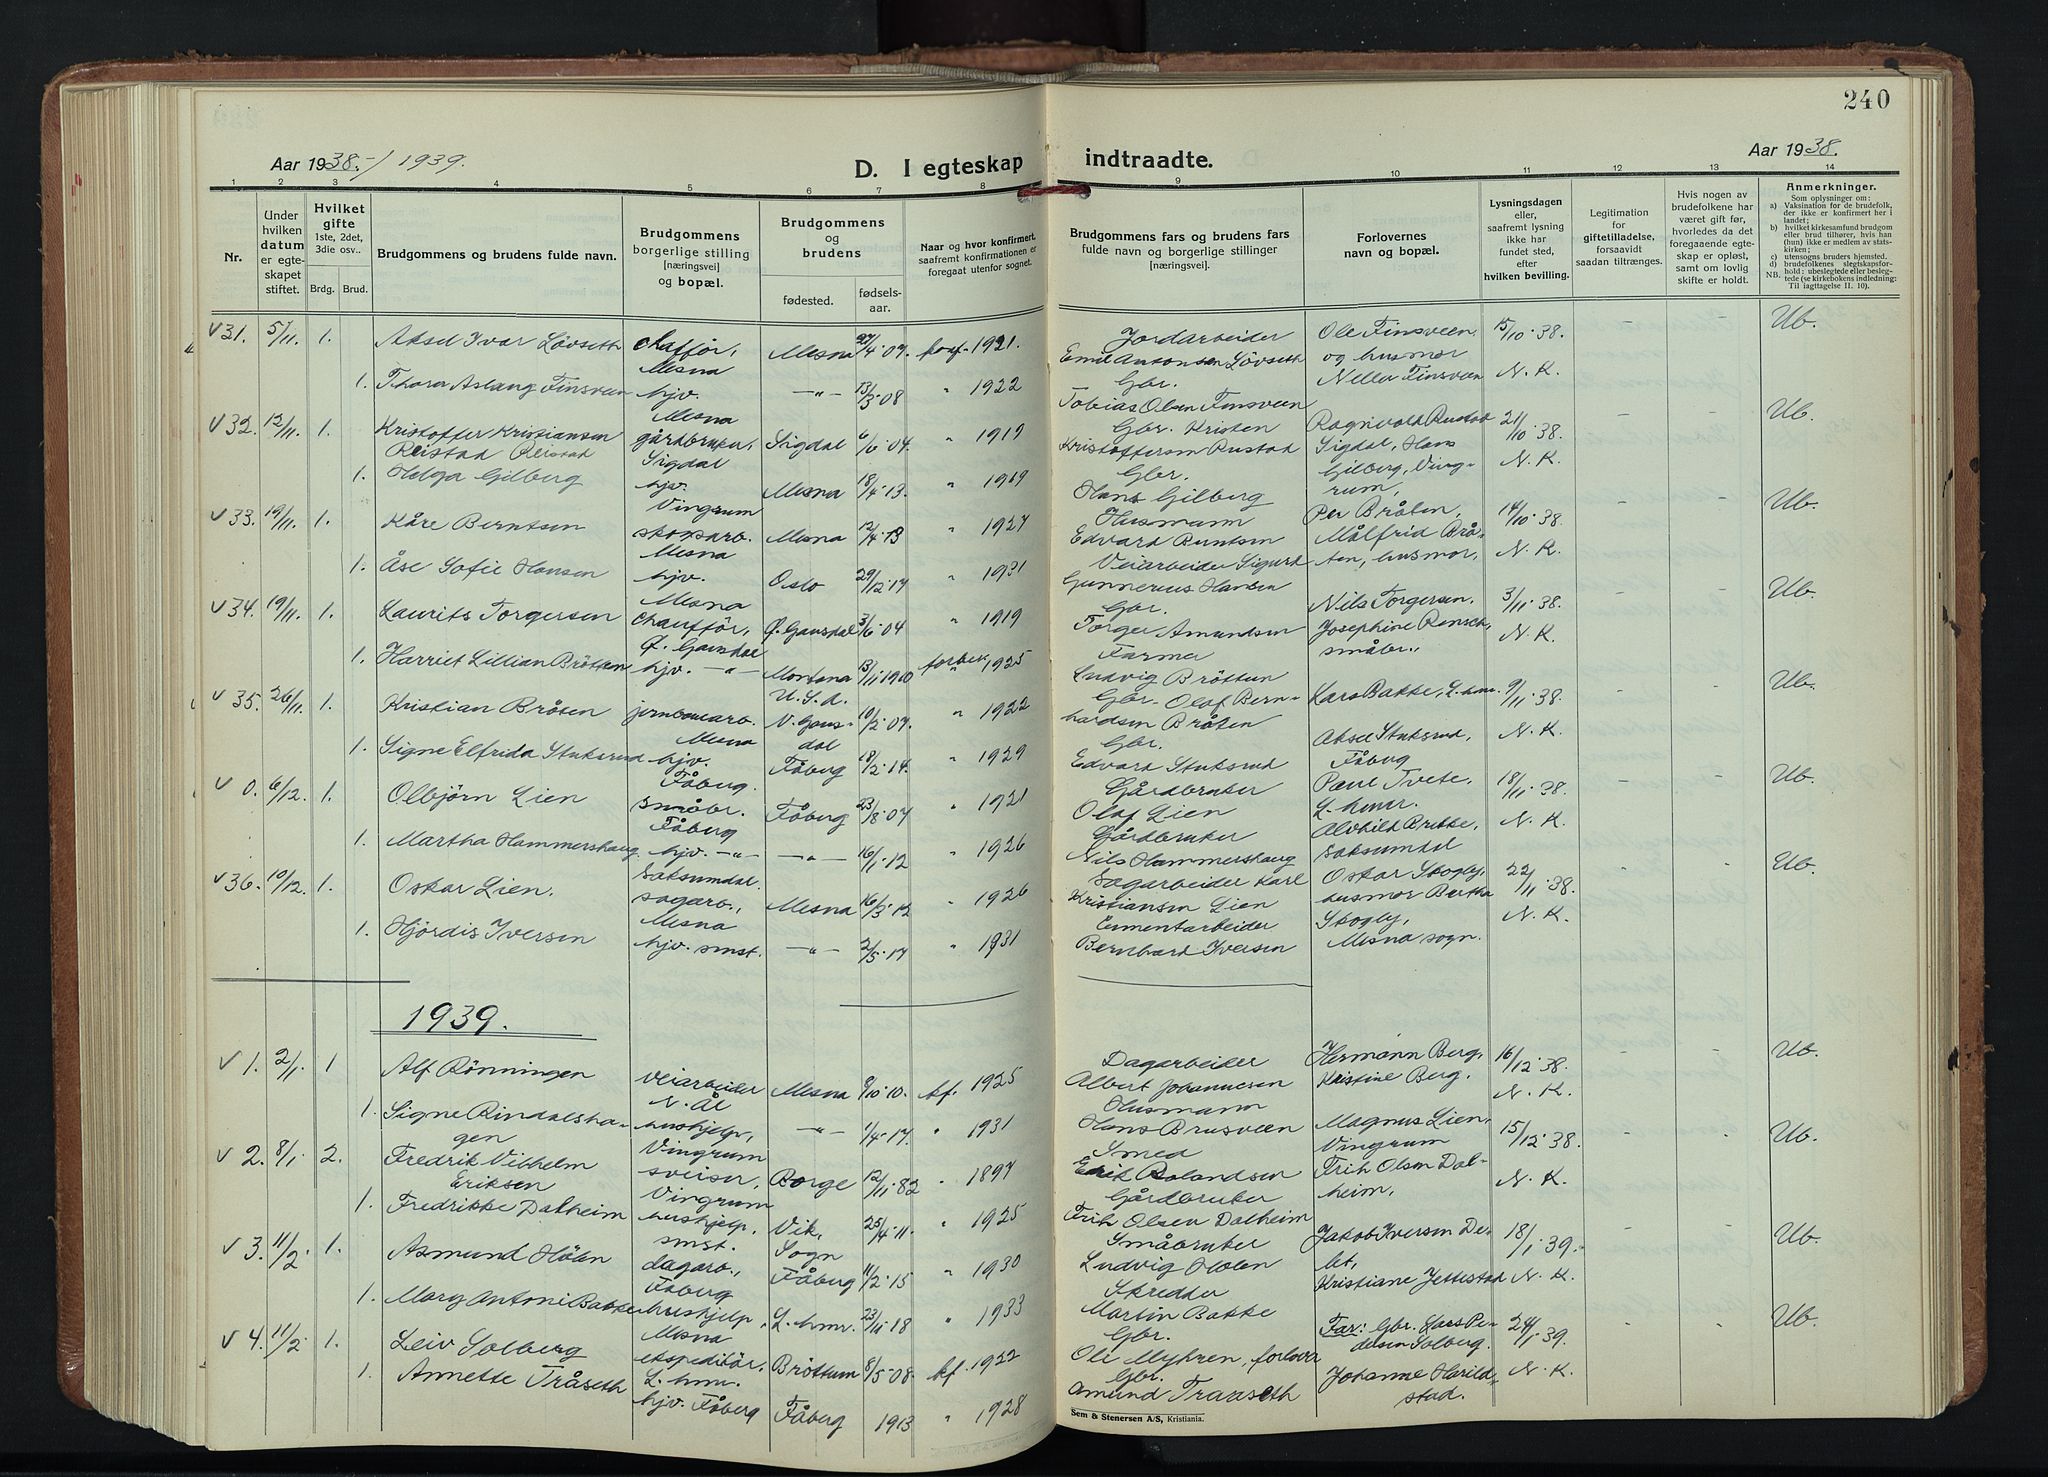 240
Aar 1938.-/1939.
D. I egteskap indtraadte.
Aar 1938.
1 2 3 4 5 6 7 8 9 10 11 12 13 14
Nr.
Under hvilken datum er egteskapet stiftet.
Hvilket gifte
1ste, 2det, 3die osv..
Brdg. Brud.
Brudgommens og brudens fulde navn.
Brudgommens borgerlige stilling [næringsvei] og bopæl.
Brudgommens og brudens
fødested. fødselsaar.
Naar og hvor konfirmert, saafremt konfirmationen er foregaat utenfor sognet.
Brudgommens fars og brudens fars fulde navn og borgerlige stillinger [næringsvei].
Forlovernes navn og bopæl.
Lysningsdagen eller, saafremt lysning ikke har fundet sted, efter hvilken bevilling.
Legitimation for giftetilladelse, forsaavidt saadan tiltrænges.
Hvis nogen av brudefolkene har været gift før, hvorledes da det foregaaende egteskap er opløst, samt om lovlig skifte er holdt.
Anmerkninger.
Som oplysning om:
a) Vaksination for de brudefolk, der ikke er konfirmert her i landet;
b) hvilket kirkesamfund brudgom eller brud tilhører, hvis han (hun) ikke er medlem av statskirken;
c) utensogns bruders hjemsted.
d) brudefolkenes slegtskapsforhold: ubeslegtede eller beslegtede (se kirkebokens indledning: Til iagttagelse II. 10).
NB.
v 31. 5/11. 1. Aksel Ivar Lövseth chaffør, Mesna Mesna 27/4 07. konf. 1921. Jordarbeider Emil Antonsen Lövseth Ole Finsveen og husmor Nella Finsveen 15/10 38. N. K. Ub.
1. Thora Aslaug Finsveen hjv. Mesna -"- 13/3 08 " 1922 Gbr. Tobias Olsen Finsveen
v 32. 12/11. 1. Kristoffer Kristiansen gårdbruker, Sigdal Sigdal 04. " 1919 Gbr. Kristen Kristoffersen Rustad Ragnvald Rustad Sigdal, Hans Gilberg, Vingrum, 21/10 38. N. K. Ub.
1. Helga Gilberg hjv. Vingrum Mesna 18/4 13. " 1919 Gbr. Hans Gilberg
v 33. 19/11. 1. Kåre Berntsen skogsarb. Mesna Mesna 12/4 13 " 1927 Husmann Edvard Berntsen Per Bråten, Målfrid Bråten, husmor, 14/10 38. N. K. Ub.
1. Åse Sofie Hansen hjv. Mesna Oslo 29/12 17 " 1931 Veiarbeider Sigurd Gunnerius Hansen
v 34. 19/11. 1. Laurits Torgersen Chauffør, Ø. Gausdal Ø. Gausdal 3/6 04 " 1919 Gbr. Torger Amundsen Nils Torgersen, Josephine småbr., 3/11 38. N. K. Ub.
1. Harriet Lillian Bröttum hjv. -"- Montana U.S.A. 13/11 1910 1925 Farmer Ludvig Bröttum
v 35. 26/11. 1. Kristian Bråten jernbanearb. Mesna V. Gausdal 10/2 07. " 1922 Gbr. Olaf Bernhardsen Bråten Lars Bakke, L.hmr. 9/11 38. N. K. Ub.
1. Signe Elfrida Stuksrud hjv. Fåberg. Fåberg 18/2 14. " 1929 Gbr. Edvard Stuksrud Aksel Stuksrud, Fåberg
v 0. 6/12. 1. Olbjörn Lien småbr. Fåberg Fåberg 23/8 07 " 1921 Gårdbruker Olaf Lien Paul Tvete, L.hmr. 18/11 38. N. K. Ub.
1. Martha Hammershaug hjv. -"- -"- 16/1 12 " 1926 Gårdbruker Nils Hammershaug Alvhild Brekke, Saksumdal
v 36. 10/12. 1. Oskar Lien. Saksumdal. sagarb., Mesna Mesna 16/3 12 " 1926 Sagarbeider Karl Kristiansen Lien Oskar Skogly, husmor Bertha Skogly, Mesna sogn. 22/11 38. N. K. Ub.
1. Hjördis Iversen hjv. smst. -"- 2/5 17 " 1931 Cementarbeider Bernhard Iversen
1939.
v 1. 2/1. 1 Alf Rönningen veiarbeider N. Ål Mesna 9/10 10. kf. 1925 Dagarbeider Albert Johannesen Hermann Berg, Kristine Berg. 16/12 38. N. K. Ub.
1. Signe Rindalshagen hushjelp, Vingrum -"- 1/4 17. " 1931 Husmann Hans Brusveen
v 2. 8/1. 2. Fredrik Vilhelm Eriksen sveiser, Vingrum Borge 12/11 82 " 1897 Smed Erik Rolandsen Magnus Lien, Vingrum 15/12 38. N. K. Ub.
1. Fredrikke Dalheim hushjelp, smst. Vik, Sogn 25/4 11. " 1925 Gårdbruker Frih Olsen Dalheim Frih Olsen Dalheim,
v 3. 11/2. 1. Asmund Hölen dagarb., Fåberg Fåberg 11/2 15 " 1930 Småbruker Ludvig Hölen Jakob Iversen Delet, Kristiane Jettestad 18/1 39. N. K. Ub.
1. Mary Antoni Bakke hushjelp, Mesna L.hmr. 23/11 18 " 1933 Skredder Martin Bakke
v 4. 11/2. 1. Leiv Solberg ekspeditör. L.hmr. Bröttum 8/5 08. kf. 1922 Gbr. Ole Myhren, forlover Far: Gbr. Lars Pedersen Solberg. 24/1 39. N. K. Ub.
1. Annette Tråseth hjv. Fåberg Fåberg 1913 " 1928 Gbr. Amund Traaseth Johanne Harildstad.
Sem & Stenersen A/S, Kristiania.